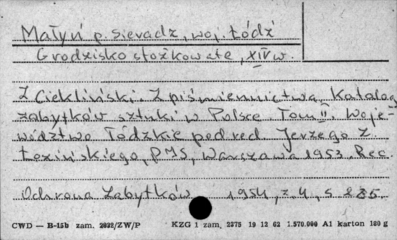 Małyń p. Sieradz, woj. Łódź
Grodzisko stożkowate, XIV w.
Z Ciekliński. Z piśmiennictwa. Katalog
zabytków sztuki w Polsce Tom II. Woje-
wództwo Łódzkie pod red Jerzego Z.
Łozińskiego, PMS, Warszawa 1953. Rec.
Ochrona Zabytków 1954, z. 4, s 285.
CWD — B-15b zam. 2022/ZW/P KZG 1 zam. 2275 19 12 62 1.570.000 A1 karton 180 g